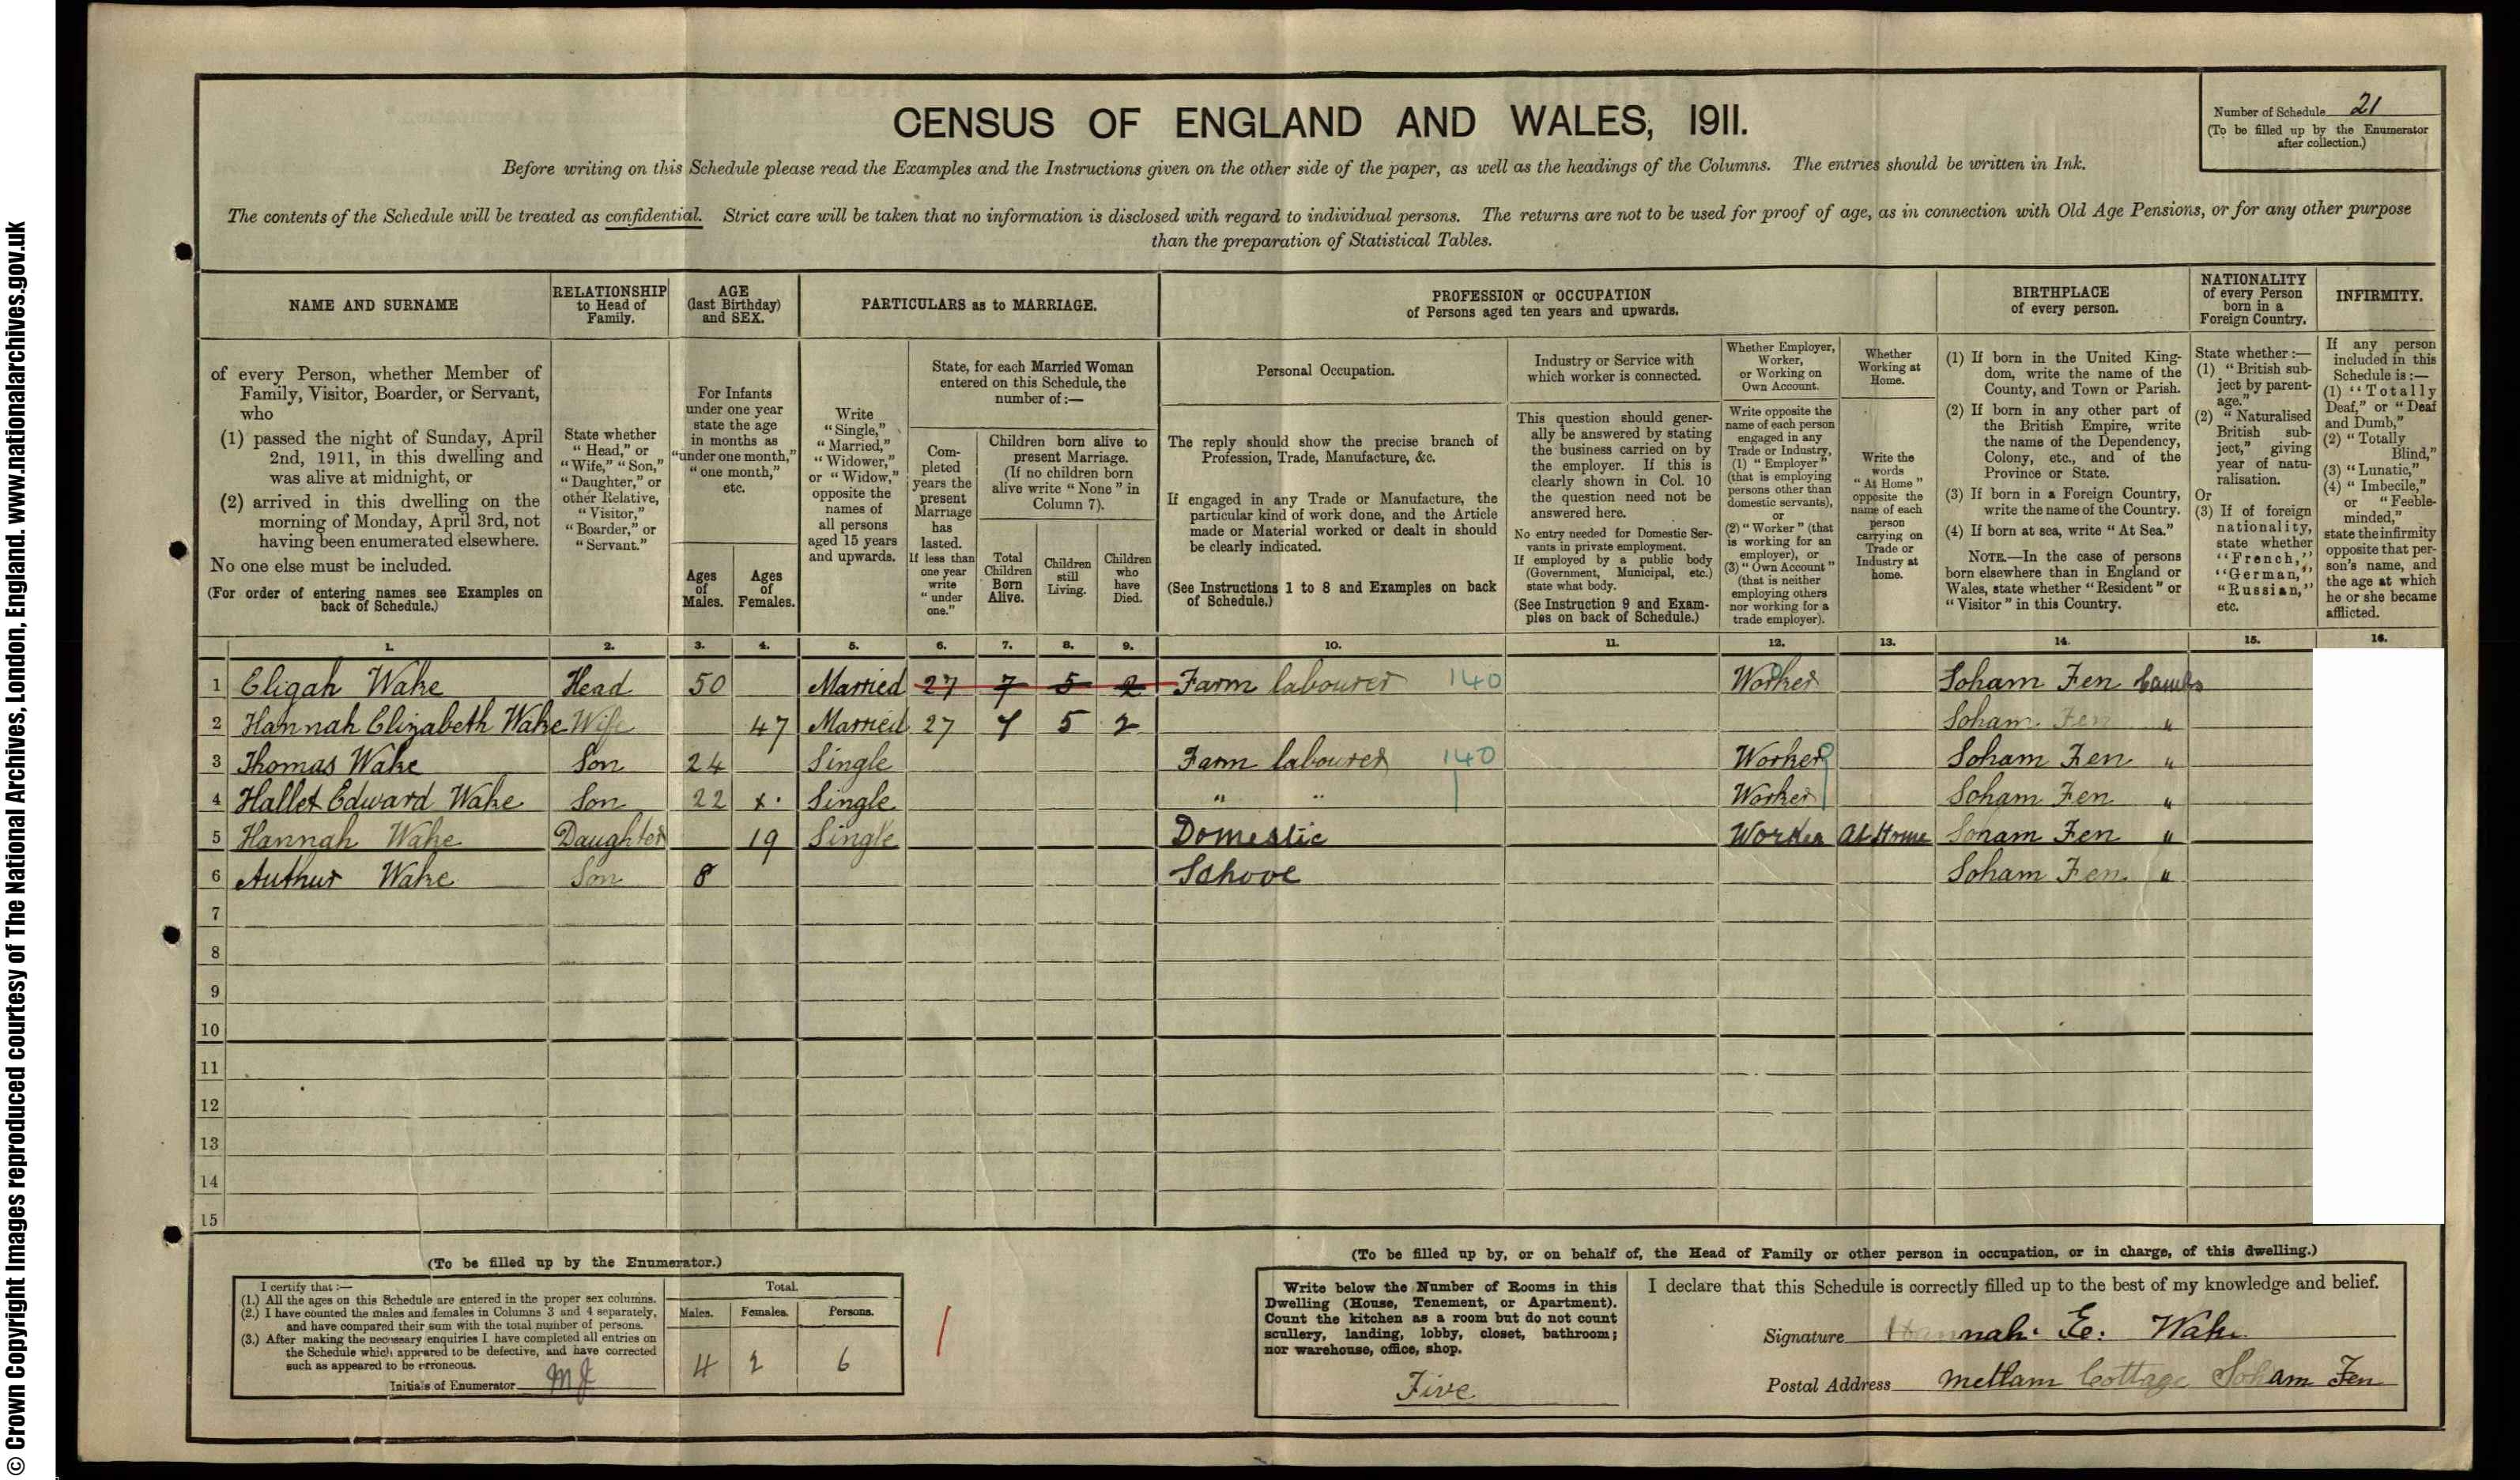 © Crown Copyright Images reproduced courtesy of The National Archives, London, England. www.nationalarchives.gov.uk
CENSUS OF ENGLAND AND WALES, 1911.
Number of Schedule 21
(To be filled up by the Enumerator
after collection.)
Before writing on this Schedule please read the Examples and the Instructions given on the other side of the paper, as well as the headings of the Columns. The entries should be written in Ink.
The contents of the Schedule will be treated as confidential. Strict care will be taken that no information is disclosed with regard to individual persons. The returns are not to be used for proof of age, as in connection with Old Age Pensions, or for any other purpose
than the preparation of Statistical Tables.
NAME AND SURNAME
of every Person, whether Member of
Family, Visitor, Boarder, or Servant,
who
(1) passed the night of Sunday, April
2nd, 1911, in this dwelling and
was alive at midnight, or
(2) arrived in this dwelling on the
morning of Monday, April 3rd, not
having been enumerated elsewhere.
No one else must be included.
(For order of entering names see Examples on
back of Schedule.)
RELATIONSHIP
to Head of
Family.
State whether
"Head," or
"Wife," "Son,"
"Daughter," or
other Relative,
"Visitor,"
"Boarder," or
"Servant."
AGE
(last Birthday)
and SEX.
For Infants
under one year
state the age
in months as
"under one month,"
"one month,"
etc.
Ages
of
Males.
Ages
of
Females.
PARTICULARS as to MARRIAGE.
Write
"Single,"
"Married,"
"Widower,"
or "Widow,"
opposite the
names of
all persons
aged 15 years
and upwards.
State, for each Married Woman
entered on this Schedule, the
number of:—
Com-
pleted
years the
present
Marriage
has
lasted.
If less than
one year
write
"under
one."
Children born alive to
present Marriage.
(If no children born
alive write "None" in
Column 7).
Total
Children
Born
Alive.
Children
still
Living.
Children
who
have
Died.
PROFESSION or OCCUPATION
of Persons aged ten years and upwards.
Personal Occupation.
The reply should show the precise branch of
Profession, Trade, Manufacture, &c.
If engaged in any Trade or Manufacture, the
particular kind of work done, and the Article
made or Material worked or dealt in should
be clearly indicated.
(See Instructions 1 to 8 and Examples on back
of Schedule.)
Industry or Service with
which worker is connected.
This question should gener-
ally be answered by stating
the business carried on by
the employer. If this is
clearly shown in Col. 10
the question need not be
answered here.
No entry needed for Domestic Ser-
vants in private employment.
If employed by a public body
(Government, Municipal, etc.)
state what body.
(See Instruction 9 and Exam-
ples on back of Schedule.)
Whether Employer,
Worker,
or Working on
Own Account.
Write opposite the
name of each person
engaged in any
Trade or Industry,
(1) "Employer"
(that is employing
persons other than
domestic servants),
or
(2) "Worker" (that
is working for an
employer), or
(3) "Own Account"
(that is neither
employing others
nor working for a
trade employer).
Whether
Working at
Home.
Write the
words
"At Home"
opposite the
name of each
person
carrying on
Trade or
Industry at
home.
BIRTHPLACE
of every person.
(1) If born in the United King-
dom, write the name of the
County, and Town or Parish.
(2) If born in any other part of
the British Empire, write
the name of the Dependency,
Colony, etc., and of the
Province or State.
(3) If born in a Foreign Country,
write the name of the Country.
(4) If born at sea, write "At Sea."
NOTE.—In the case of persons
born elsewhere than in England or
Wales, state whether "Resident" or
"Visitor" in this Country.
NATIONALITY
of every Person
born in a
Foreign Country.
State whether:—
(1) "British sub-
ject by parent-
age."
(2) "Naturalised
British sub-
ject," giving
year of natu-
ralisation.
Or
(3) If of foreign
nationality,
state whether
"French,"
"German,"
"Russian,"
etc.
INFIRMITY.
If any person
included in this
Schedule is:—
(1) "Totally
Deaf," or "Deaf
and Dumb,"
(2) "Totally
Blind,"
(3) "Lunatic,"
(4) "Imbecile,"
or "Feeble-
minded,"
state the infirmity
opposite that per-
son's name, and
the age at which
he or she became
afflicted.
1. 2. 3. 4. 5. 6. 7. 8. 9. 10. 11. 12. 13. 14. 15. 16.
1 Eligah Wake Head 50 Married 27 7 5 2 Farm labourer 140 Worker Soham Fen Cambs
2 Hannah Elizabeth Wake Wife 47 Married 27 7 5 2 Soham Fen "
3 Thomas Wake Son 24 Single Farm labourer 140 Worker Soham Fen "
4 Hallet Edward Wake Son 22 x. Single " " Worker Soham Fen "
5 Hannah Wake Daughter 19 Single Domestic Worker At Home Soham Fen "
6 Authur Wake Son 8 School Soham Fen. "
7
8
9
10
11
12
13
14
15
(To be filled up by the Enumerator.)
I certify that:—
(1.) All the ages on this Schedule are entered in the proper sex columns.
(2.) I have counted the males and females in Columns 3 and 4 separately,
and have compared their sum with the total number of persons.
(3.) After making the necessary enquiries I have completed all entries on
the Schedule which appeared to be defective, and have corrected
such as appeared to be erroneous.
Initials of Enumerator MJ
Total.
Males. Females. Persons.
4 2 6
(To be filled up by, or on behalf of, the Head of Family or other person in occupation, or in charge, of this dwelling.)
Write below the Number of Rooms in this
Dwelling (House, Tenement, or Apartment).
Count the kitchen as a room but do not count
scullery, landing, lobby, closet, bathroom;
nor warehouse, office, shop.
Five
I declare that this Schedule is correctly filled up to the best of my knowledge and belief.
Signature Hannah. E. Wake
Postal Address Metlam Cottage Soham Fen